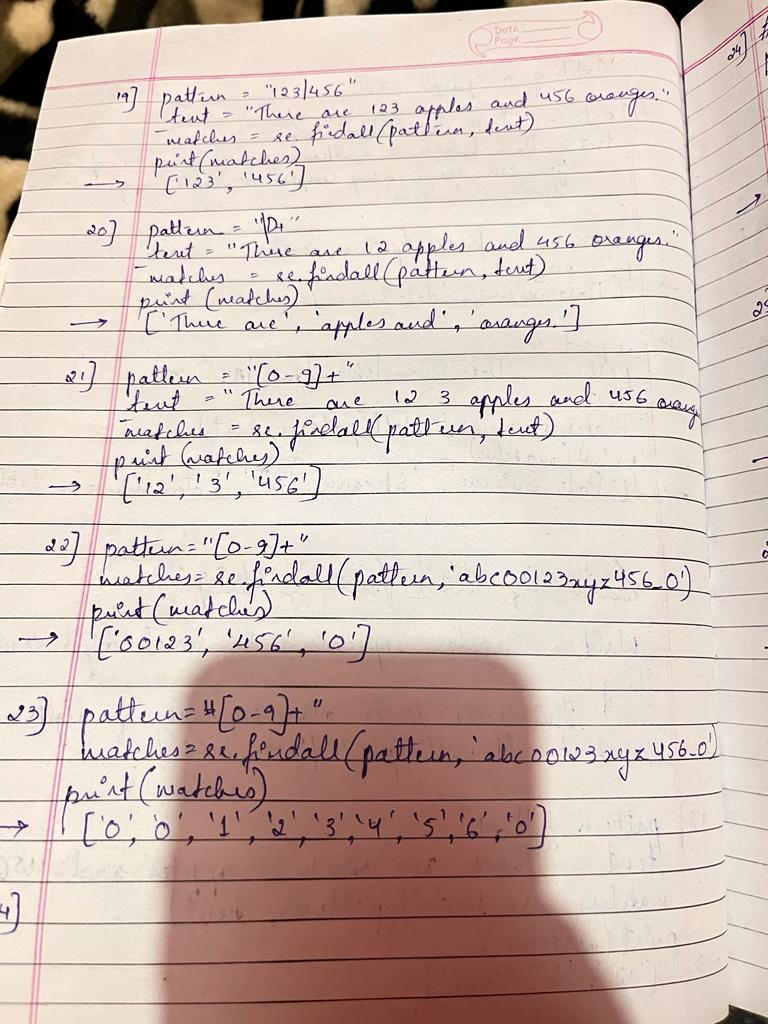 Date
Page
19] pattern = "123|456"
text = "There are 123 apples and 456 oranges."
matches = re.findall(pattern, text)
print(matches)
→ ['123', '456']
20] pattern = "\D+"
text = "There are 12 apples and 456 oranges."
matches = re.findall(pattern, text)
print (matches)
→ ['There are', 'apples and', 'oranges.']
21] pattern = "[0-9]+"
text = "There are 12 3 apples and 456 orang
matches = re.findall(pattern, text)
print (matches)
→ ['12', '3', '456']
22] pattern="[0-9]+"
matches= re.findall(pattern, 'abc00123xyz456_0')
print(matches)
→ ['00123', '456', '0']
23] pattern="[0-9]+"
matches= re.findall(pattern, 'abc00123xyz456_0')
print(matches)
→ ['0', '0', '1', '2', '3', '4', '5', '6', '0']
4]
24]